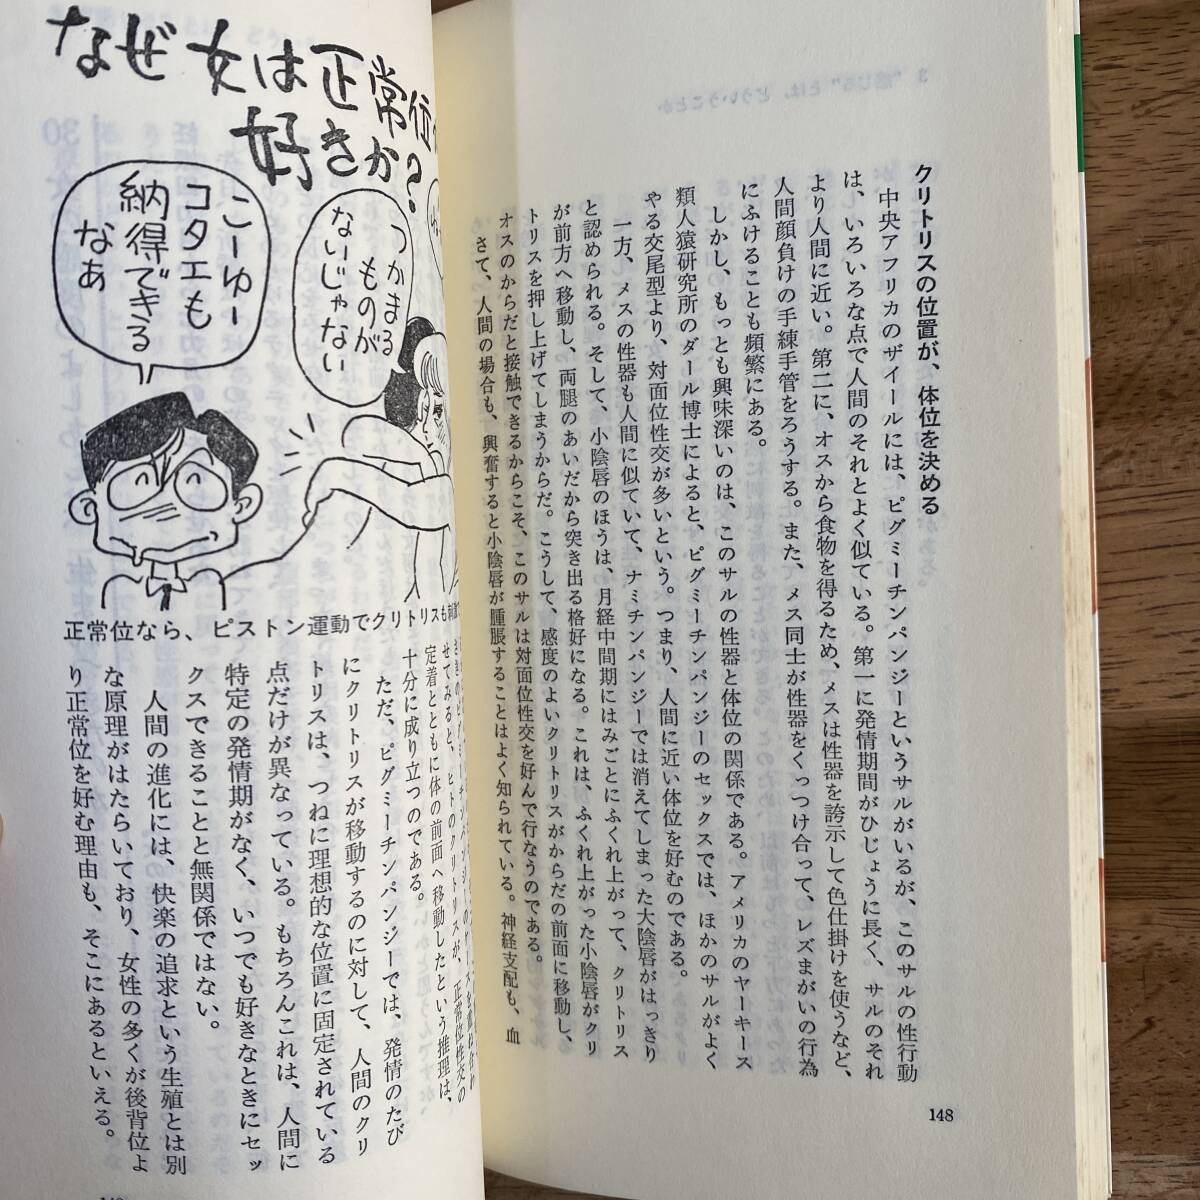 3 “感じる”とは、どういうことか
クリトリスの位置が、体位を決める
中央アフリカのザイールには、ピグミーチンパンジーというサルがいるが、このサルの性行動
は、いろいろな点で人間のそれとよく似ている。第一に発情期間がひじょうに長く、サルのそれ
より人間に近い。第二に、オスから食物を得るため、メスは性器を誇示して色仕掛けを使うなど、
人間顔負けの手練手管をろうする。また、メス同士が性器をくっつけ合って、レズまがいの行為
にふけることも頻繁にある。
しかし、もっとも興味深いのは、このサルの性器と体位の関係である。アメリカのヤーキース
類人猿研究所のダール博士によると、ピグミーチンパンジーのセックスでは、ほかのサルがよく
やる交尾型より、対面位性交が多いという。つまり、人間に近い体位を好むのである。
一方、メスの性器も人間に似ていて、ナミチンパンジーでは消えてしまった大陰唇がはっきり
と認められる。そして、小陰唇のほうは、月経中間期にはみごとにふくれ上がって、クリトリス
が前方へ移動し、両腿のあいだから突き出る格好になる。これは、ふくれ上がった小陰唇がクリ
トリスを押し上げてしまうからだ。こうして、感度のよいクリトリスがからだの前面に移動し、
オスのからだと接触できるからこそ、このサルは対面位性交を好んで行なうのである。
さて、人間の場合も、興奮すると小陰唇が腫脹することはよく知られている。神経支配も、血
148
なぜ女は正常位
好きか?
つかまる
ものが
ないじゃない
こーゆー
コタエも
納得できる
なあ
正常位なら、ピストン運動でクリトリスも刺激
せてみると、ヒトのクリトリスが、正常位性交の
定着とともに体の前面へ移動したという推理は、
十分に成り立つのである。
ただ、ピグミーチンパンジーでは、発情のたび
にクリトリスが移動するのに対して、人間のクリ
トリスは、つねに理想的な位置に固定されている
点だけが異なっている。もちろんこれは、人間に
特定の発情期がなく、いつでも好きなときにセッ
クスできることと無関係ではない。
人間の進化には、快楽の追求という生殖とは別
な原理がはたらいており、女性の多くが後背位よ
り正常位を好む理由も、そこにあるといえる。